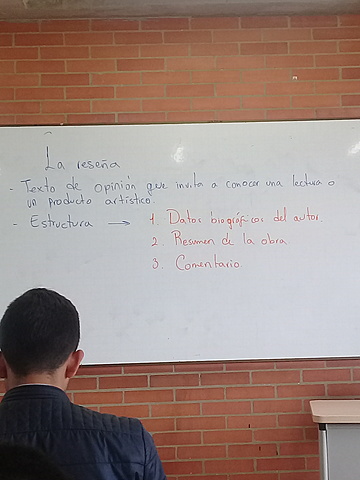 La reseña
- Texto de opinión que invita a conocer una lectura o
un producto artístico.
- Estructura → 1. Datos biográficos del autor.
2. Resumen de la obra
3. Comentario.